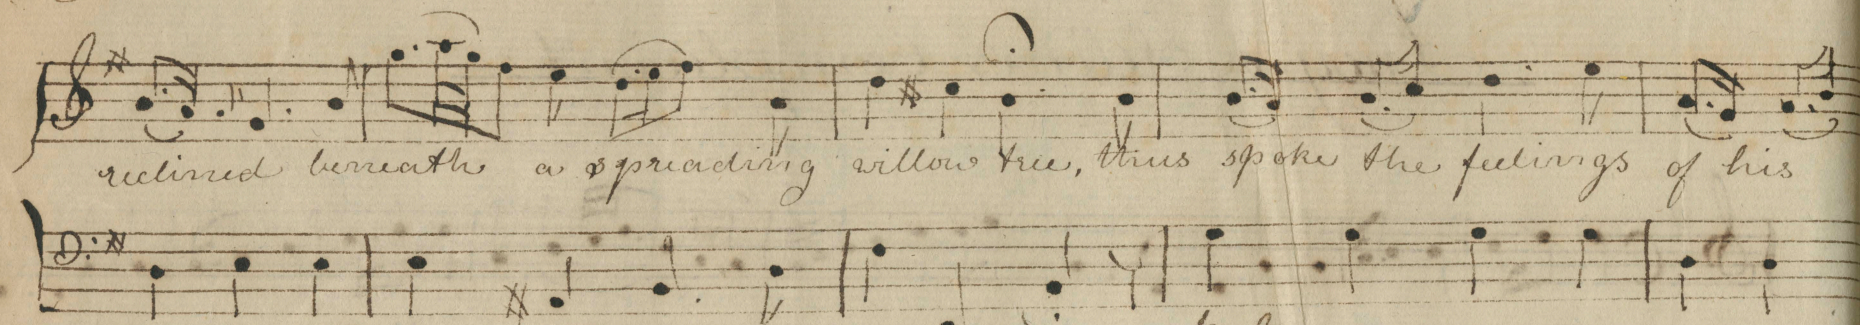 reclined beneath a spreading willow tree, thus spoke the feelings of his